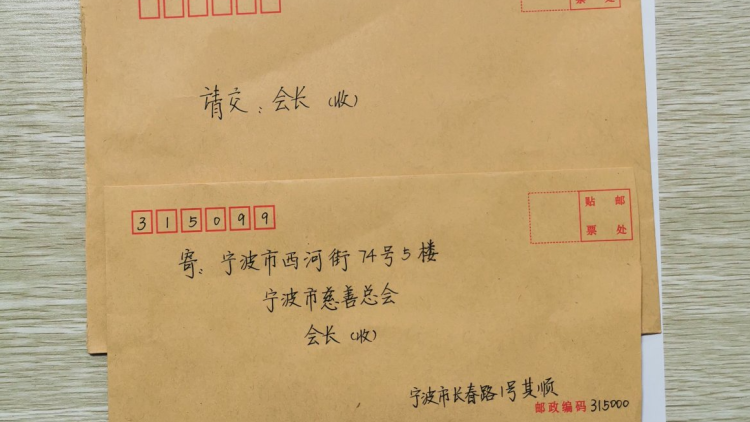 票处
请交：会长（收）
315099
贴 邮
票 处
寄：宁波市西河街74号5楼
宁波市慈善总会
会长（收）
宁波市长春路1号其顺
邮政编码 315000